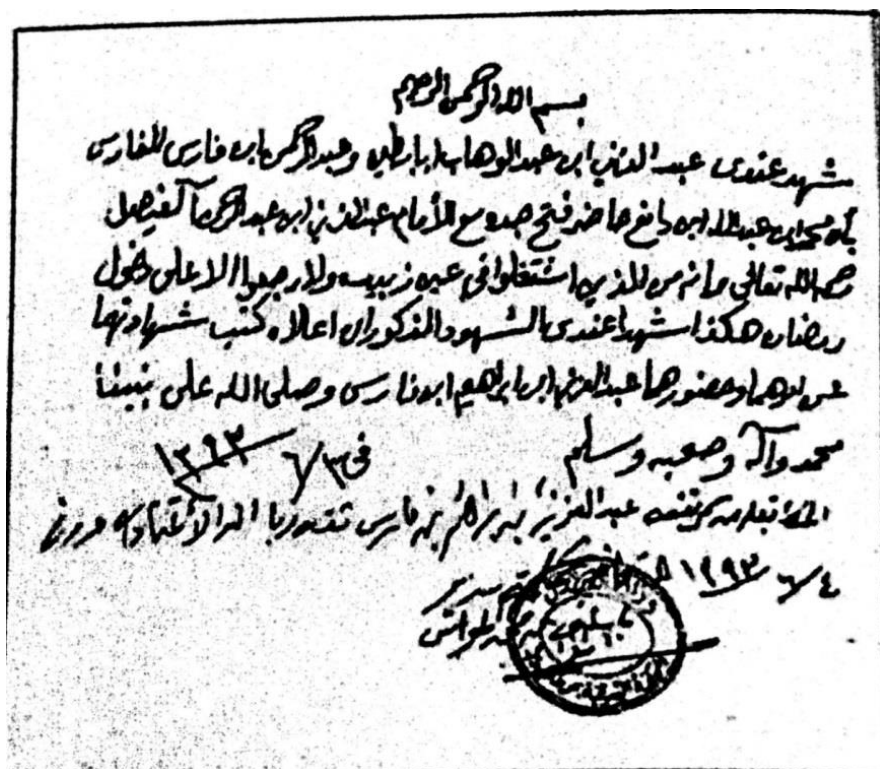 بسم الله الرحمن الرحيم
شهد عندي عبد الغني ابن عبد الوهاب ابابطين وعبد الرحمن ابن فارس الفارس
بأن محمد ابن عبد الله ابن مانع حاضر فتح جده مع الأمام عبد العزيز ابن عبد الرحمن آل فيصل
رحمه الله تعالى وانه من الذين اشتغلوا في عين زبيده ولا رجعوا الا على دخول
رمضان هكذا شهدا عندي الشهود المذكوران اعلاه كتب شهادتهما
عن امرهما وحضورهما عبد العزيز ابن ابراهيم ابن فارس وصلى الله على نبينا
محمد وآله وصحبه وسلم في ٣/٦/١٣٩٣
عبد العزيز بن ابراهيم بن فارس ثقه
٤/٦/١٣٩٣